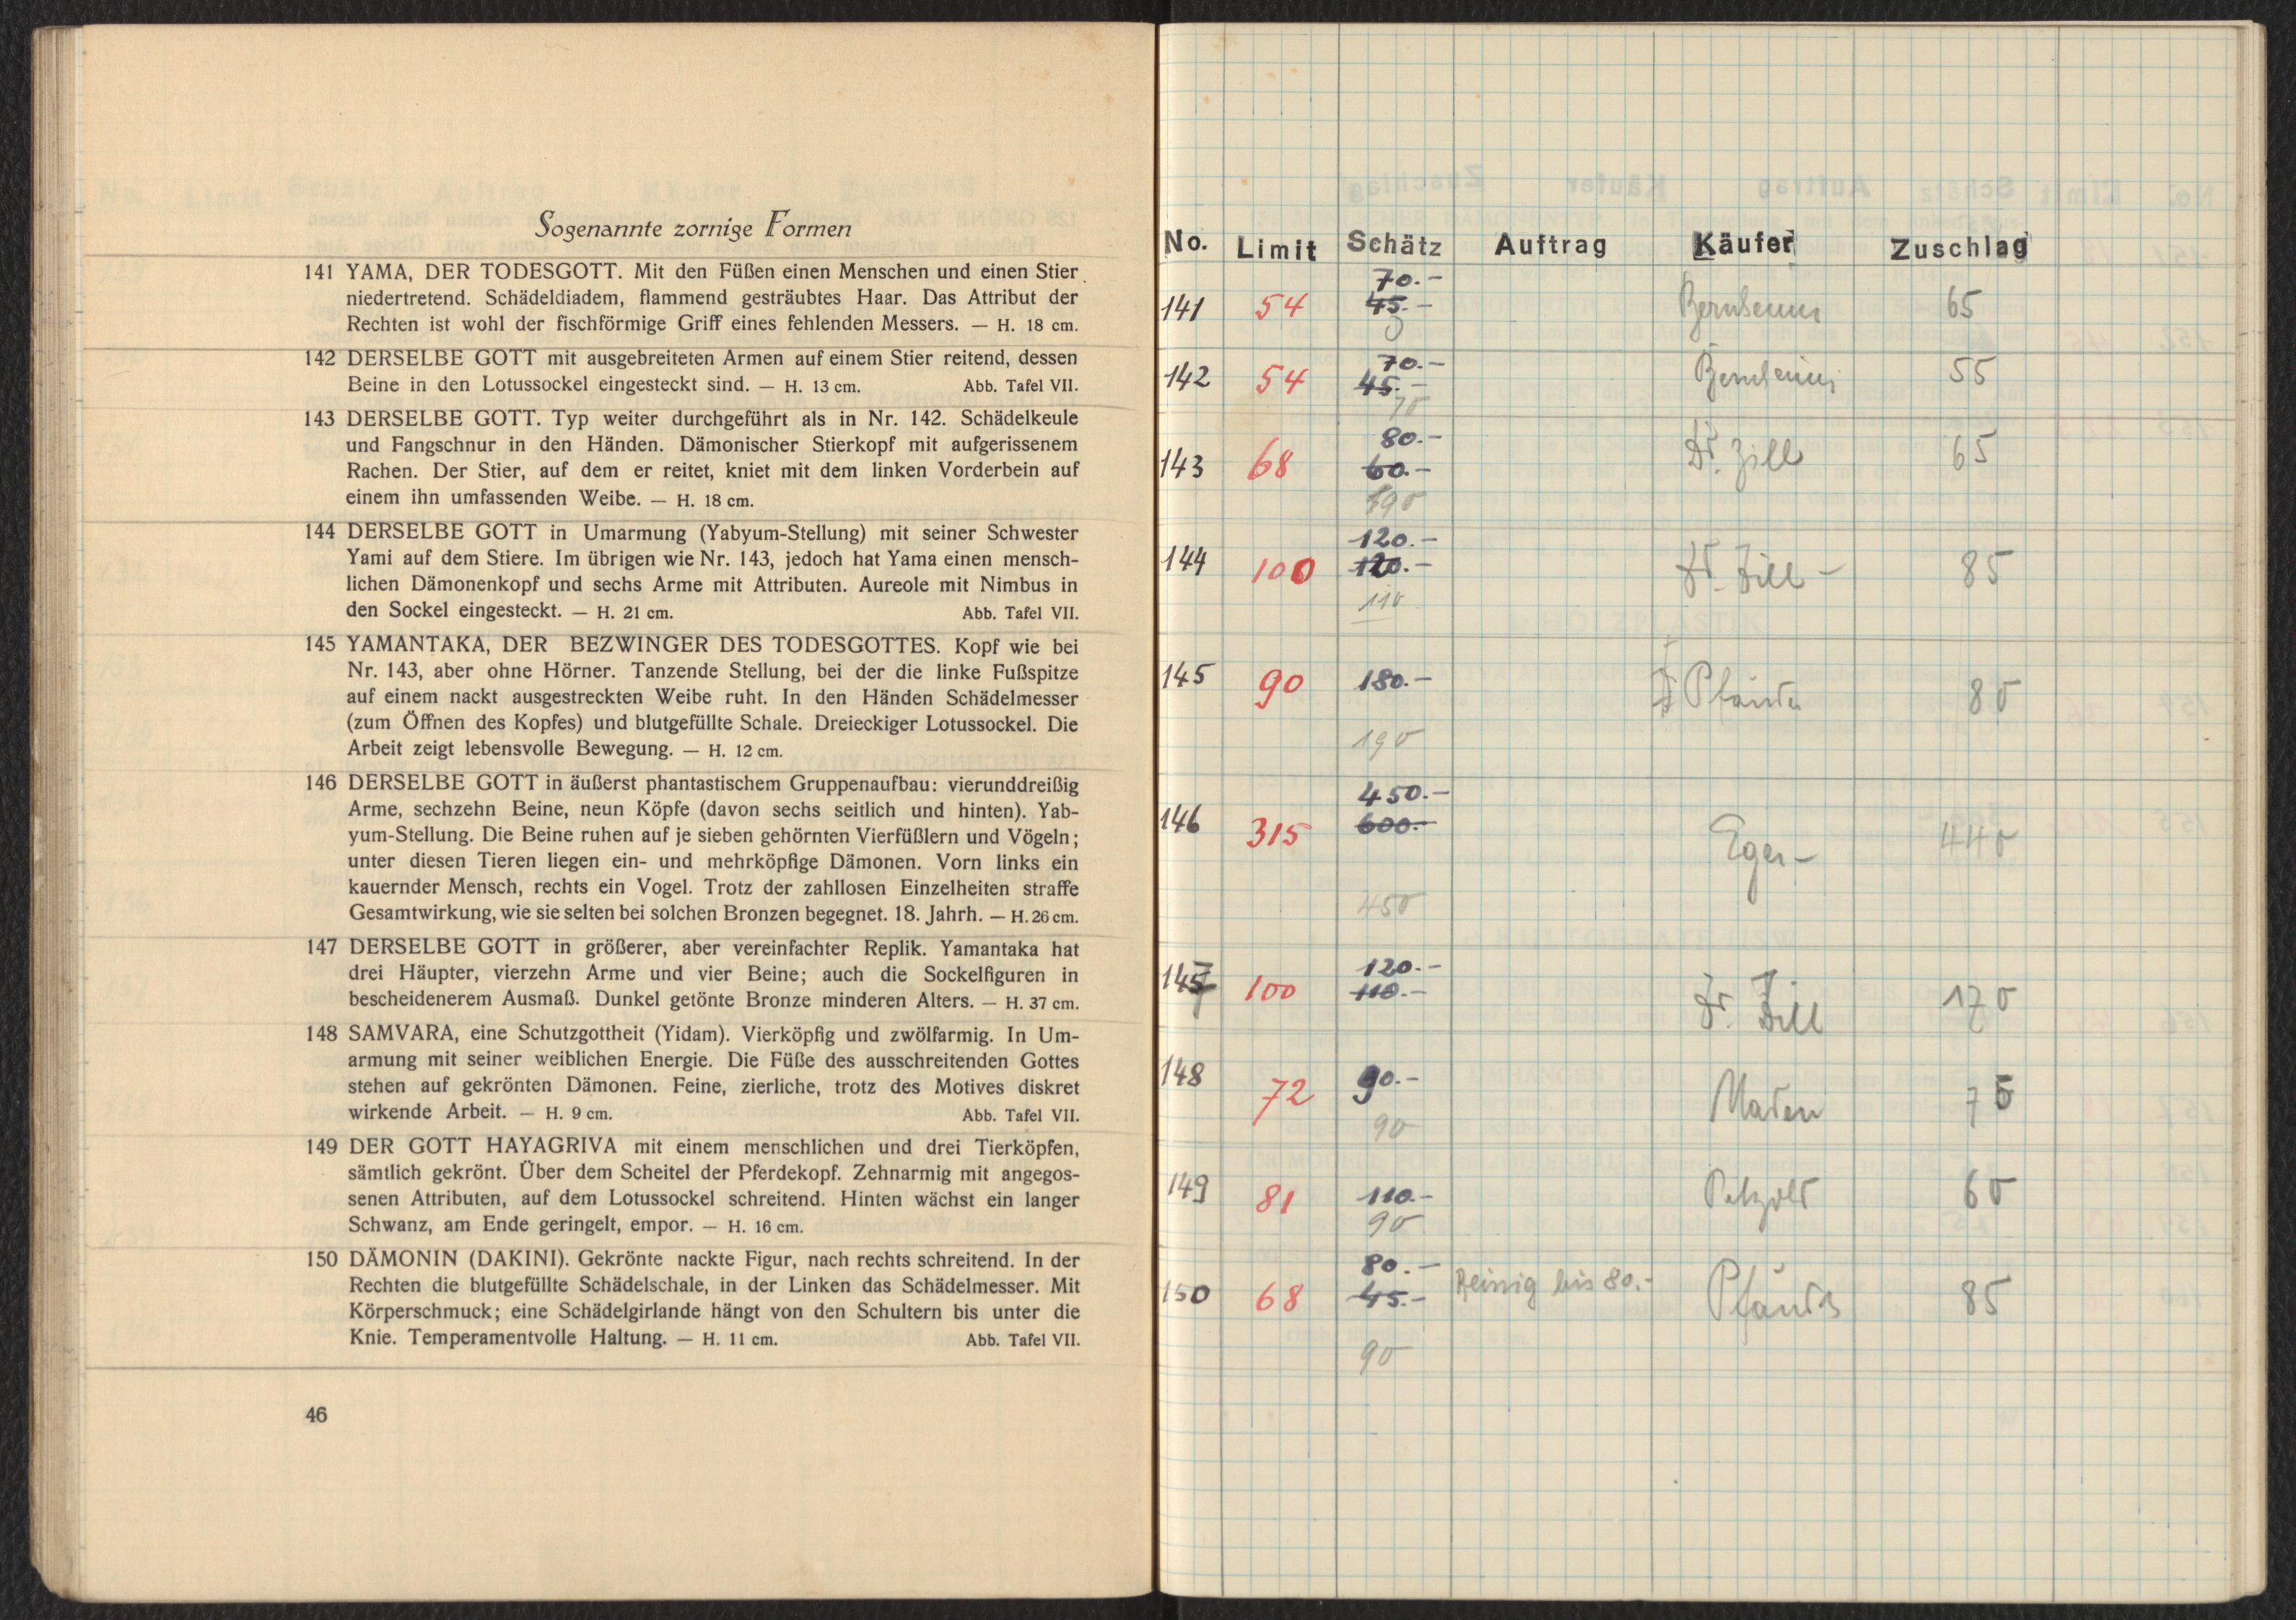 Sogenannte zornige Formen
141 YAMA, DER TODESGOTT. Mit den Füßen einen Menschen und einen Stier
niedertretend. Schädeldiadem, flammend gesträubtes Haar. Das Attribut der
Rechten ist wohl der fischförmige Griff eines fehlenden Messers. — H. 18 cm.
142 DERSELBE GOTT mit ausgebreiteten Armen auf einem Stier reitend, dessen
Beine in den Lotussockel eingesteckt sind. — H. 13 cm. Abb. Tafel VII.
143 DERSELBE GOTT. Typ weiter durchgeführt als in Nr. 142. Schädelkeule
und Fangschnur in den Händen. Dämonischer Stierkopf mit aufgerissenem
Rachen. Der Stier, auf dem er reitet, kniet mit dem linken Vorderbein auf
einem ihn umfassenden Weibe. — H. 18 cm.
144 DERSELBE GOTT in Umarmung (Yabyum-Stellung) mit seiner Schwester
Yami auf dem Stiere. Im übrigen wie Nr. 143, jedoch hat Yama einen mensch-
lichen Dämonenkopf und sechs Arme mit Attributen. Aureole mit Nimbus in
den Sockel eingesteckt. — H. 21 cm. Abb. Tafel VII.
145 YAMANTAKA, DER BEZWINGER DES TODESGOTTES. Kopf wie bei
Nr. 143, aber ohne Hörner. Tanzende Stellung, bei der die linke Fußspitze
auf einem nackt ausgestreckten Weibe ruht. In den Händen Schädelmesser
(zum Öffnen des Kopfes) und blutgefüllte Schale. Dreieckiger Lotussockel. Die
Arbeit zeigt lebensvolle Bewegung. — H. 12 cm.
146 DERSELBE GOTT in äußerst phantastischem Gruppenaufbau: vierunddreißig
Arme, sechzehn Beine, neun Köpfe (davon sechs seitlich und hinten). Yab-
yum-Stellung. Die Beine ruhen auf je sieben gehörnten Vierfüßlern und Vögeln;
unter diesen Tieren liegen ein- und mehrköpfige Dämonen. Vorn links ein
kauernder Mensch, rechts ein Vogel. Trotz der zahllosen Einzelheiten straffe
Gesamtwirkung, wie sie selten bei solchen Bronzen begegnet. 18. Jahrh. — H. 26 cm.
147 DERSELBE GOTT in größerer, aber vereinfachter Replik. Yamantaka hat
drei Häupter, vierzehn Arme und vier Beine; auch die Sockelfiguren in
bescheidenerem Ausmaß. Dunkel getönte Bronze minderen Alters. — H. 37 cm.
148 SAMVARA, eine Schutzgottheit (Yidam). Vierköpfig und zwölfarmig. In Um-
armung mit seiner weiblichen Energie. Die Füße des ausschreitenden Gottes
stehen auf gekrönten Dämonen. Feine, zierliche, trotz des Motives diskret
wirkende Arbeit. — H. 9 cm. Abb. Tafel VII.
149 DER GOTT HAYAGRIVA mit einem menschlichen und drei Tierköpfen,
sämtlich gekrönt. Über dem Scheitel der Pferdekopf. Zehnarmig mit angegos-
senen Attributen, auf dem Lotussockel schreitend. Hinten wächst ein langer
Schwanz, am Ende geringelt, empor. — H. 16 cm.
150 DÄMONIN (DAKINI). Gekrönte nackte Figur, nach rechts schreitend. In der
Rechten die blutgefüllte Schädelschale, in der Linken das Schädelmesser. Mit
Körperschmuck; eine Schädelgirlande hängt von den Schultern bis unter die
Knie. Temperamentvolle Haltung. — H. 11 cm. Abb. Tafel VII.
46
No. Limit Schätz Auftrag Käufer Zuschlag
70.-
141 54 45.- 65
70.-
142 54 45.- 55
70
80.-
143 68 60.- Dr. Zill 65
190
120.-
144 100 120.- Dr. Zill - 85
110
145 90 180.- 80
190
450.-
146 315 600.- Eger - 440
450
120.-
147 100 110.- Dr. Zill 170
148 72 90.- Maden 75
90
149 81 110.- Petzold 60
90
80.-
150 68 45.- bis 80.- 85
90